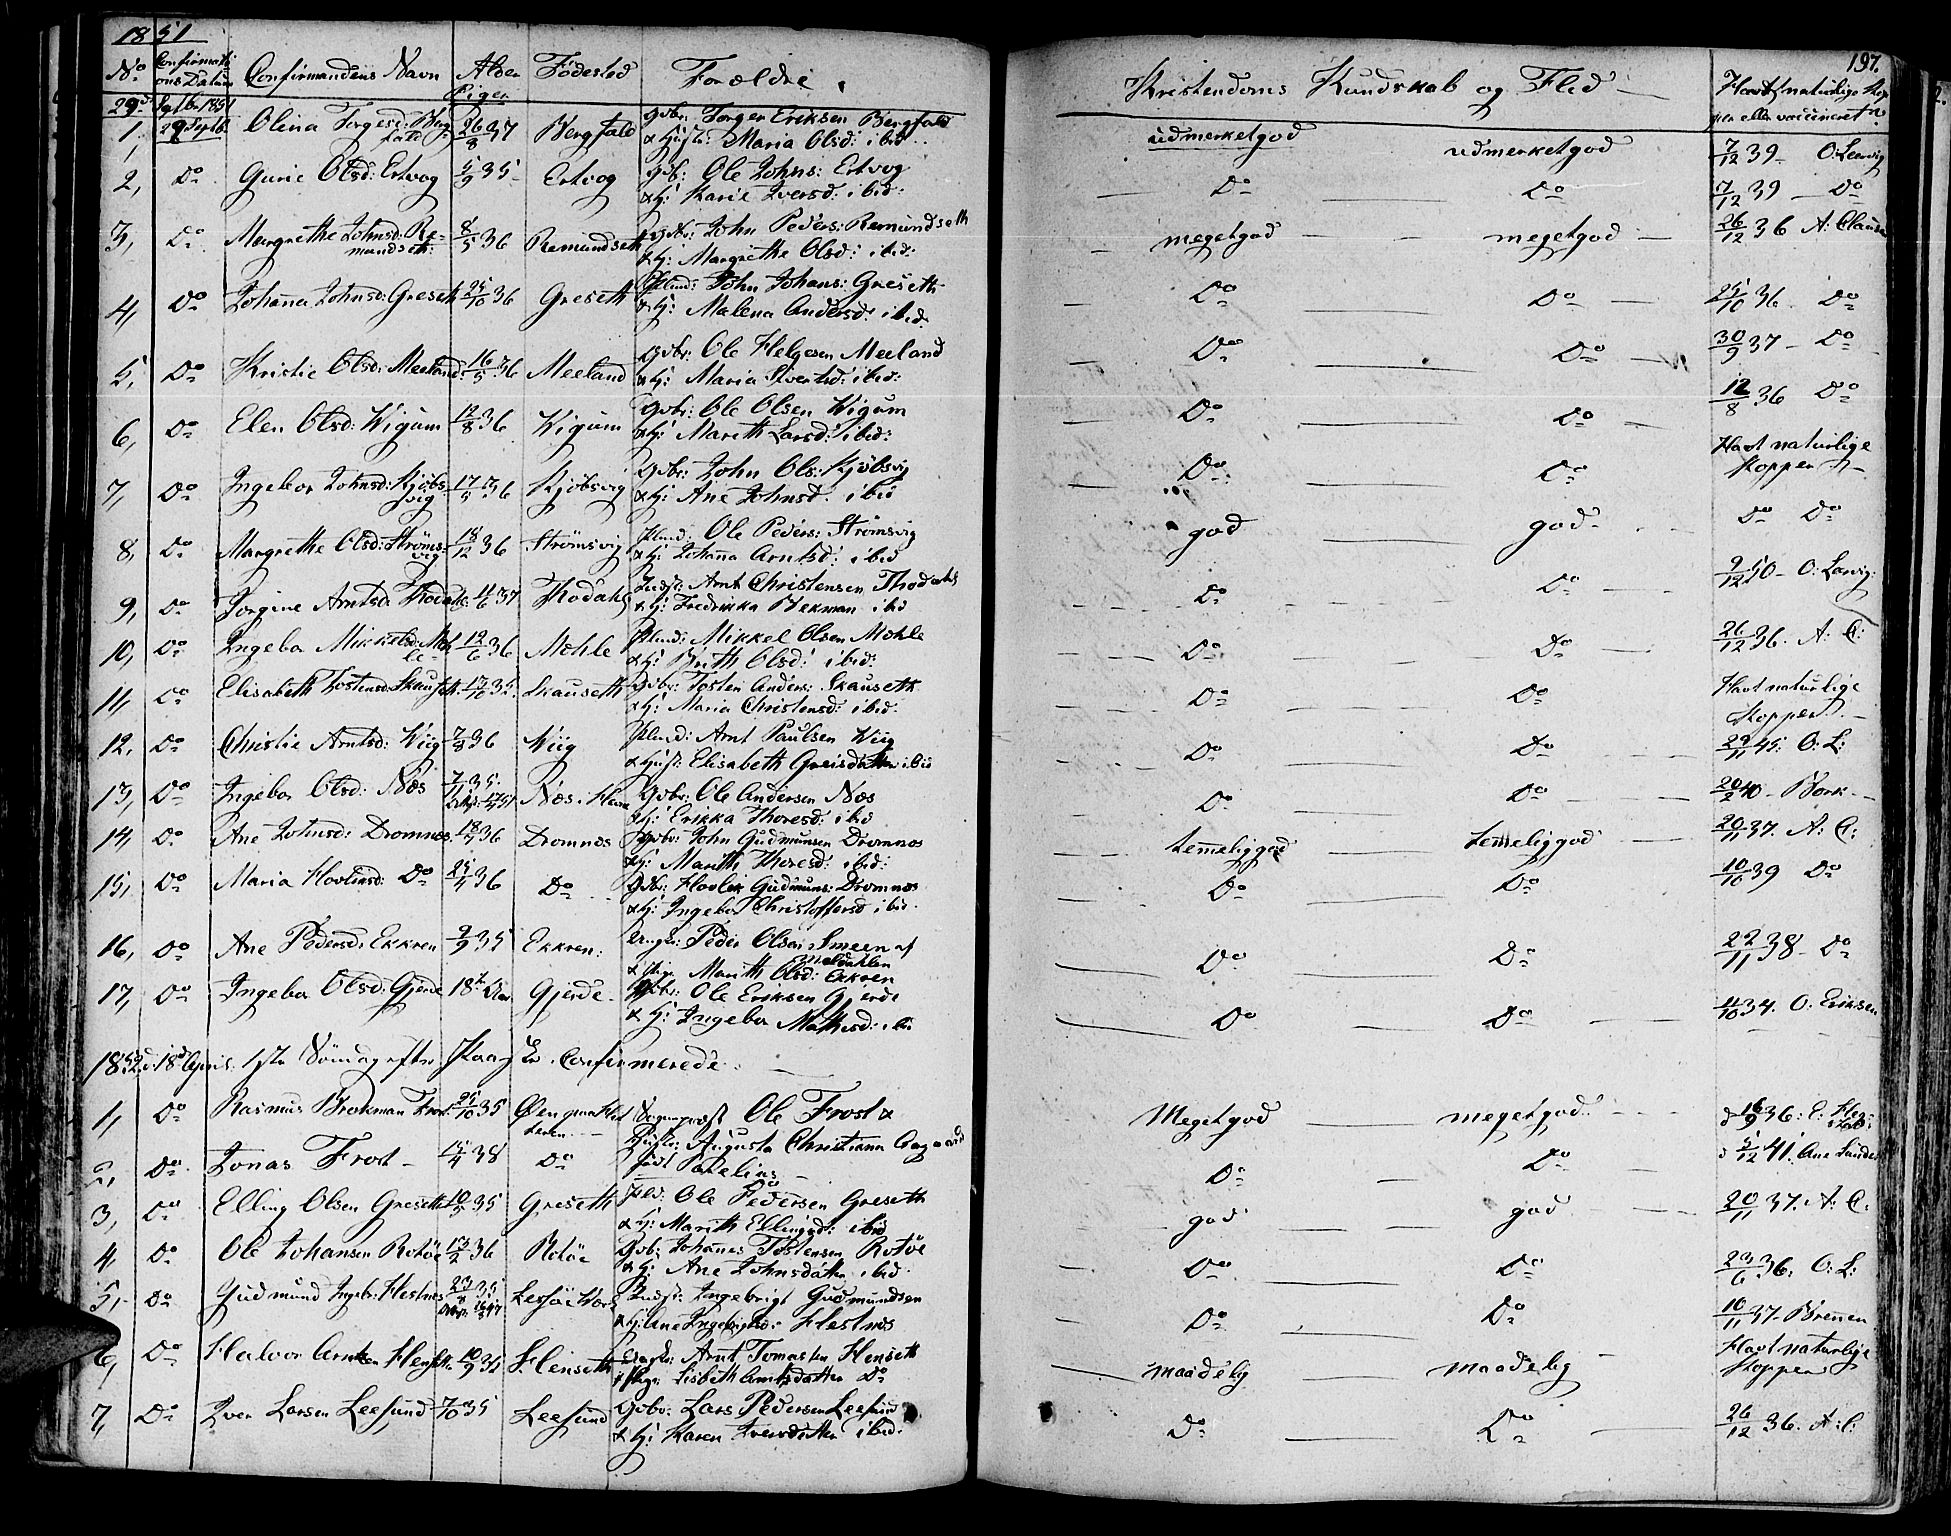 1851
No Confirmati ons Datum Confirmandens Navn Alder Födested Forældre
Piger
197.
Kristendoms Kundskab og Flid Havt naturlige Kop per eller vaccineret
29de Septbr 1851
1, 29 Septb. Olina Torgersd: Berg fald 26/8 37 Bergfald Gvbr: Torger Eriksen Bergfald
& Hustr: Maria Olsd: ibid udmerketgod udmerketgod 7/12 39 - O: Leervig
2, Do Gurie Olsd: Ertvog 5/9 35 Ertvog Gvb: Ole Johns: Ertvog
& Hj: Karie Iversd: ibid: Do Do 7/12 39 - Do
3, Do Margrethe Johnsd: Re- mundseth: 8/5 36 Remundseth Gvbr: John Peders: Remundseth
& Hj: Margrethe Olsd: ibid: megetgod megetgod 26/12 36 A: Clausen
4, Do Johanna Johnsd: Greseth 25/10 36 Greseth Hsmd: John Johans: Greseth
& Hj: Malena Andersd: ibid. Do Do 25/10 36. Do
5, Do Kristie Olsd: Meeland: 16/5 36 Meeland Gvbr: Ole Helgesen Meeland
& Hj: Maria Sivertsd: ibid: Do Do 30/9 37 - Do
6, Do Elen Olsd: Wigum 12/8 36 Wigum Gvbr: Ole Olsen Wigum
& Hj: Marith Larsd: ibid: Do Do 12/8 36 Do
7, Do Ingebor Johnsd: Kjöbs- vig 17/5 36 Kjöbsvig Gvbr: John Ols: Kjöbsvig
& Hj: Ane Johnsd. ibid Do Do Havt naturlige Kopper
8, Do Margrethe Olsd: Ströms- vig 18/12 36 Strömsvig Hsmd: Ole Peders: Strömsvig
& Hj: Johanna Arntsd: ibid god god Do Do
9, Do Jorgine Arntsd: Thodal: 4/6 37 Thodahl Indst: Arnt Christensen Thodahl
& Hj: Fredrikka Bekman ibid Do Do 9/12 50 - O: Larvig:
10, Do Ingebor Mikkelsd: Moh le 12/6 36 Mohle Hsmd: Mikkel Olsen Mohle
& Hj: Brith Olsd: ibid: Do Do 26/12 36. A: C:
11, Do Elisabeth Tostensd: Skauseth. 13/10 35. Skauseth Gvbr: Tosten Anders: Skauseth
& Hj: Maria Christensd: ibid. Do Do Havt naturlige Kopper.
12, Do Christie Arntsd: Wiig 7/8 36 Wiig Hsmd: Arnt Paulsen Wiig
& Hust: Elisabeth Greisdatter ibid Do Do 29/11 45. O: L:
13, Do Ingebor Olsd: Nös 7/11 35. Nös i Hevne Gvbr: Ole Andersen Nös
& Hj: Erikka Thoresd: ibid Do Do 20/2 40 - Bork
14, Do Ane Johnsd: Dromnes 18/7 36 Dromnes Gvbr: John Gudmunsen Dromnos
& Hj: Marith Thoresd: ibid: temeliggod temeliggod 20/11 37. A: C:
15, Do Maria Hovlensd: Do 25/4 36 Do Gvbr: Hovlen Gudmuns: Dromnos
& Hj: Ingebor Christoffersd ibid. Do Do 10/10 39 Do
16, Do Ane Pedersd: Ekkren 9/9 35 Ekkren: Ungkr: Peder Olsen Smeen af
& Pige Marith Olsd: Ekkren Do Do 22/11 38 - Do
17, Do Ingebor Olsd: Gjerde 18 Gjerde Gvbr: Ole Eriksen Gjerde
& Hj: Ingebor Mathisd: ibid Do Do 4/10 34. O: Eriksen
1852 d: 18d April 1ste Söndag efter Paaske Er Confirmerede:
1, Do Rasmus Brokman Frost. 25/10 35 Sogneprest Ole Frost & Megetgod megetgod. 16/9 36:
Hustr: Augusta Christiana
2, Do Jonas Frost 15/4 38 Do födt Do Do 5/12 41. Ane
3, Do Elling Olsen Greseth 10/5 35 Greseth Hsmd: Ole Pedersen Greseth
& Hj: Marith Ellingsd: ibid god god 20/11 37. A: C:
4, Do Ole Johansen Rotöe 13/2 36 Rotöe Gvb: Johannes Tostensen Rotöe
& Hj: Ane Johnsdatter ibid Do Do 23/6 36. O: L:
5, Do Gudmund Ingebr: Hestnes 23/8 35 Indst: Ingebrigt Gudmundsen
& Hj: Ane Ingebrigtsd: Hestnes Do Do 10/11 37 - Brennen
6, Do Halvor Arntsen Henseth 10/9 35 Henseth Ungkr: Arnt Tomassen Henseth
& Pige Lisbeth Arntsdatter Do maadelig maadelig Havt naturlige Kopper
7, Do Iver Larsen Leesund 7/10 35 Leesund Gvbr: Lars Pedersen Leesund
& Hj: Karen Iversdatter ibid: Do Do 26/12 36. A: C: